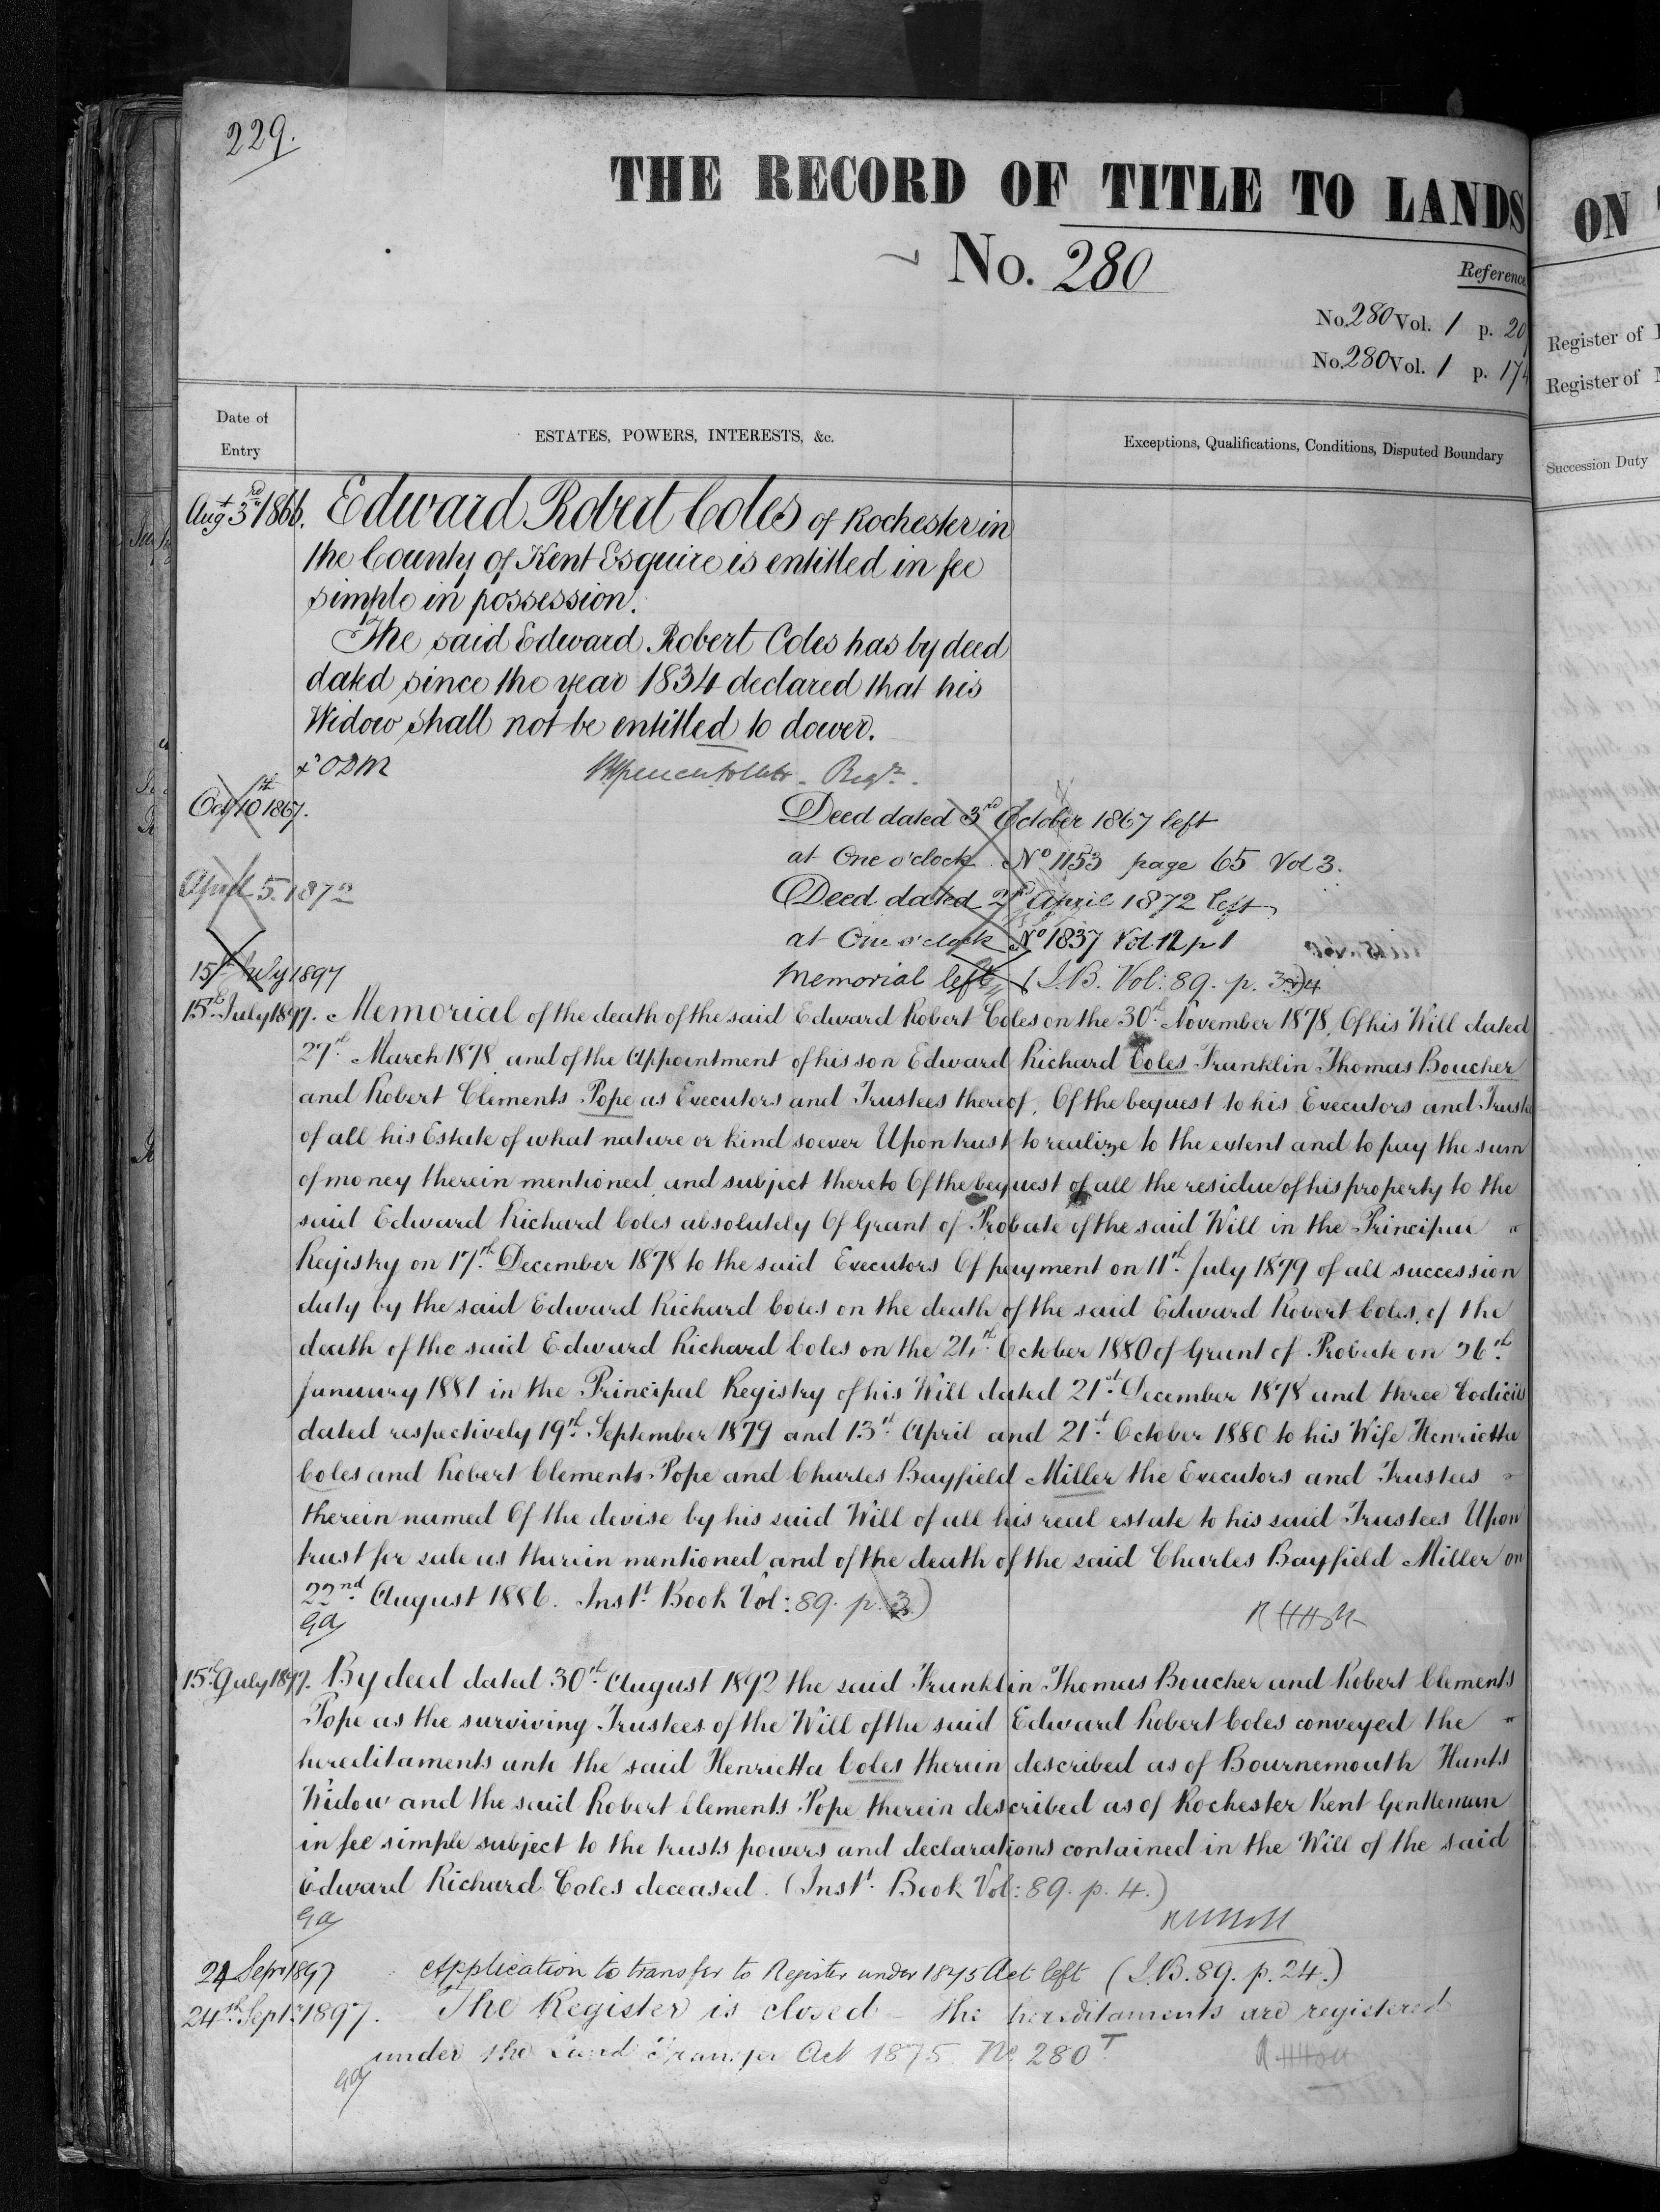 229.
THE RECORD OF TITLE TO LANDS
No. 280
Reference
No. 280 Vol. 1 p. 20
No. 280 Vol. 1 p. 174
Date of Entry
ESTATES, POWERS, INTERESTS, &c.
Exceptions, Qualifications, Conditions, Disputed Boundary
Augt 3rd 1866. Edward Robert Coles of Rochester in
the County of Kent Esquire is entitled in fee
simple in possession.
The said Edward Robert Coles has by deed
dated since the year 1834 declared that his
Widow shall not be entitled to dower.
Regr.
Oct 10th 1867. Deed dated 3rd October 1867 left
at One o'clock No 1153 page 65 Vol 3.
April 5. 1872 Deed dated 2nd April 1872 left
at One o'clock No 1837 Vol 12 p 1
15th July 1897 Memorial left (I.B. Vol: 89. p. 3) 4
15th July 1897. Memorial of the death of the said Edward Robert Coles on the 30th November 1878, Of his Will dated
27th March 1878 and of the Appointment of his son Edward Richard Coles Franklin Thomas Boucher
and Robert Clements Pope as Executors and Trustees thereof, Of the bequest to his Executors and Truste
of all his Estate of what nature or kind soever Upon trust to realize to the extent and to pay the sum
of money therein mentioned and subject thereto Of the bequest of all the residue of his property to the
said Edward Richard Coles absolutely Of Grant of Probate of the said Will in the Principal "
Registry on 17th December 1878 to the said Executors Of payment on 11th July 1879 of all succession
duty by the said Edward Richard Coles on the death of the said Edward Robert Coles, of the
death of the said Edward Richard Coles on the 24th October 1880 of Grant of Probate on 26th
January 1881 in the Principal Registry of his Will dated 21st December 1878 and three Codicils
dated respectively 19th September 1879 and 13th April and 21st October 1880 to his Wife Henrietta
Coles and Robert Clements Pope and Charles Bayfield Miller the Executors and Trustees "
therein named Of the devise by his said Will of all his real estate to his said Trustees Upon
trust for sale as therein mentioned and of the death of the said Charles Bayfield Miller on
22nd August 1886. Instt Book Vol: 89. p. 3)
15th July 1897. By deed dated 30th August 1892 the said Franklin Thomas Boucher and Robert Clements
Pope as the surviving Trustees of the Will of the said Edward Robert Coles conveyed the "
hereditaments unto the said Henrietta Coles therein described as of Bournemouth Hants
Widow and the said Robert Clements Pope therein described as of Rochester Kent Gentleman
in fee simple subject to the trusts powers and declarations contained in the Will of the said
Edward Richard Coles deceased. (Instt Book Vol: 89. p. 4.)
24 Sepr 1897 Application to transfer to Register under 1875 Act left (I.B. 89. p. 24.)
24th Septr 1897. The Register is closed – the hereditaments are registered
under the Land Transfer Act 1875. No 280T
ON
Register of
Register of
Succession Duty